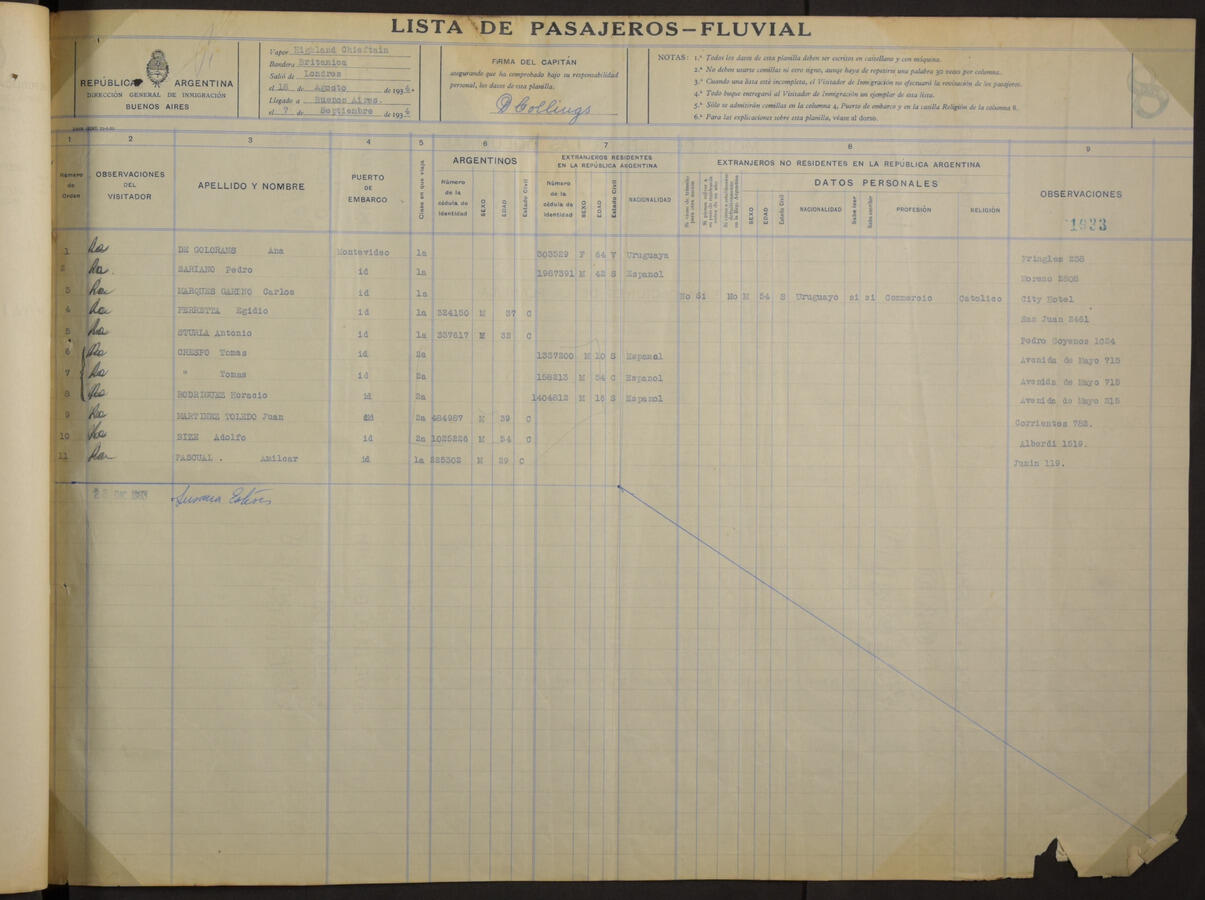 LISTA DE PASAJEROS-FLUVIAL
REPÚBLICA ARGENTINA
DIRECCIÓN GENERAL DE INMIGRACIÓN
BUENOS AIRES
Vapor Highland Chieftain
Bandera Britanica
Salió de Londres
el 18 de Agosto de 1934.
Llegado a Buenos Aires.
el 7 de Septiembre de 1934
FIRMA DEL CAPITÁN
asegurando que ha comprobado bajo su responsabilidad
personal, los datos de esta planilla.
D Collings
NOTAS: 1.ª Todos los datos de esta planilla deben ser escritos en castellano y con máquina.
2.ª No deben usarse comillas ni otro signo, aunque haya de repetirse una palabra 30 veces por columna.
3.ª Cuando una lista esté incompleta, el Visitador de Inmigración no efectuará la revisación de los pasajeros.
4.ª Todo buque entregará al Visitador de Inmigración un ejemplar de esta lista.
5.ª Sólo se admitirán comillas en la columna 4, Puerto de embarco y en la casilla Religión de la columna 8.
6.ª Para las explicaciones sobre esta planilla, véase al dorso.
1 2 3 4 5 6 7 8 9
Número de Orden
OBSERVACIONES DEL VISITADOR
APELLIDO Y NOMBRE
PUERTO DE EMBARCO
Clase en que viaja
ARGENTINOS
Número de la cédula de identidad SEXO EDAD Estado Civil
EXTRANJEROS RESIDENTES EN LA REPÚBLICA ARGENTINA
Número de la cédula de identidad SEXO EDAD Estado Civil NACIONALIDAD
EXTRANJEROS NO RESIDENTES EN LA REPÚBLICA ARGENTINA
DATOS PERSONALES
SEXO EDAD Estado Civil NACIONALIDAD Sabe leer Sabe escribir PROFESIÓN RELIGIÓN
OBSERVACIONES
1933
1 DE GOLORANS Ana Montevideo 1a 303529 F 64 V Uruguaya Pringles 238
2 SARIANO Pedro id 1a 1987391 M 42 S Espanol Moreno 2808
3 MARQUES GAMINO Carlos id 1a No Si No M 54 S Uruguayo si si Commercio Catolico City Hotel
4 FERRETTA Egidio id 1a 324150 M 37 C San Juan 2461
5 STURLA Antonio id 1a 337617 M 32 C Pedro Goyenos 1024
6 CRESPO Tomas id 2a 1337200 M 10 S Espanol Avenida de Mayo 715
7 " Tomas id 2a 158213 M 54 C Espanol Avenida de Mayo 715
8 RODRIGUEZ Horacio id 2a 1404812 M 18 S Espanol Avenida de Mayo 815
9 MARTINEZ TOLEDO Juan id 2a 484987 M 39 C Corrientes 782.
10 BIZE Adolfo id 2a 1025226 M 54 C Alberdi 1519.
11 PASCUAL . Amilcar id 1a 225302 M 29 C Junin 119.